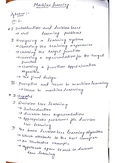 Machine Learning
Introduction and decision trees
Learning problems
Designing a learning system
Choosing the training experience
choosing the target function
choosing a representation for the target function
choosing a function approximation algorithm
The final design
Perspective and issues in machine learning
Issues in machine learning
Decision tree learning
Introduction
Decision tree representation
Appropriate problems for decision tree learning
The basic decision tree learning algorithm
Which attribute is the best classifier
an illustrative example
space search in decision tree learning